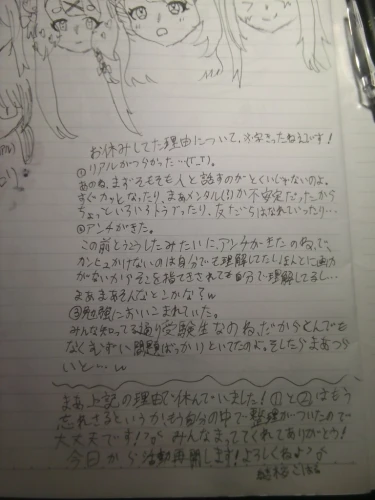 お休みしてた理由について、
①リアルがつらかった…(T_T)。
あのね、まずそもそも人と話すのがとくいじゃないのよ。
すぐカッとなったり、まぁメンタル(?)が不安定だったから
ちょっといろいろトラブったり、友だちはなれていったり…
②アンチがきた。
この前とうこうしたみたいに、アンチがきたのね、で、
のは自分でも理解してたしほんとに画力
がないから そこを指てきされても自分で理解してるし…
まぁまぁそんなとこかなw
③勉強においこまれていた。
みんな知ってる通り受験生なのね、だからとんでも
なくむずい問題ばっかりといてたのよ。そしたらまぁつら
いと…w
まぁ上記の理由で休んでいました!①と②はもう
忘れさるというか、もう自分の中で整理がついたので
大丈夫です! みんなまっててくれてありがとう!
今日から活動再開します!よろしくねぇ